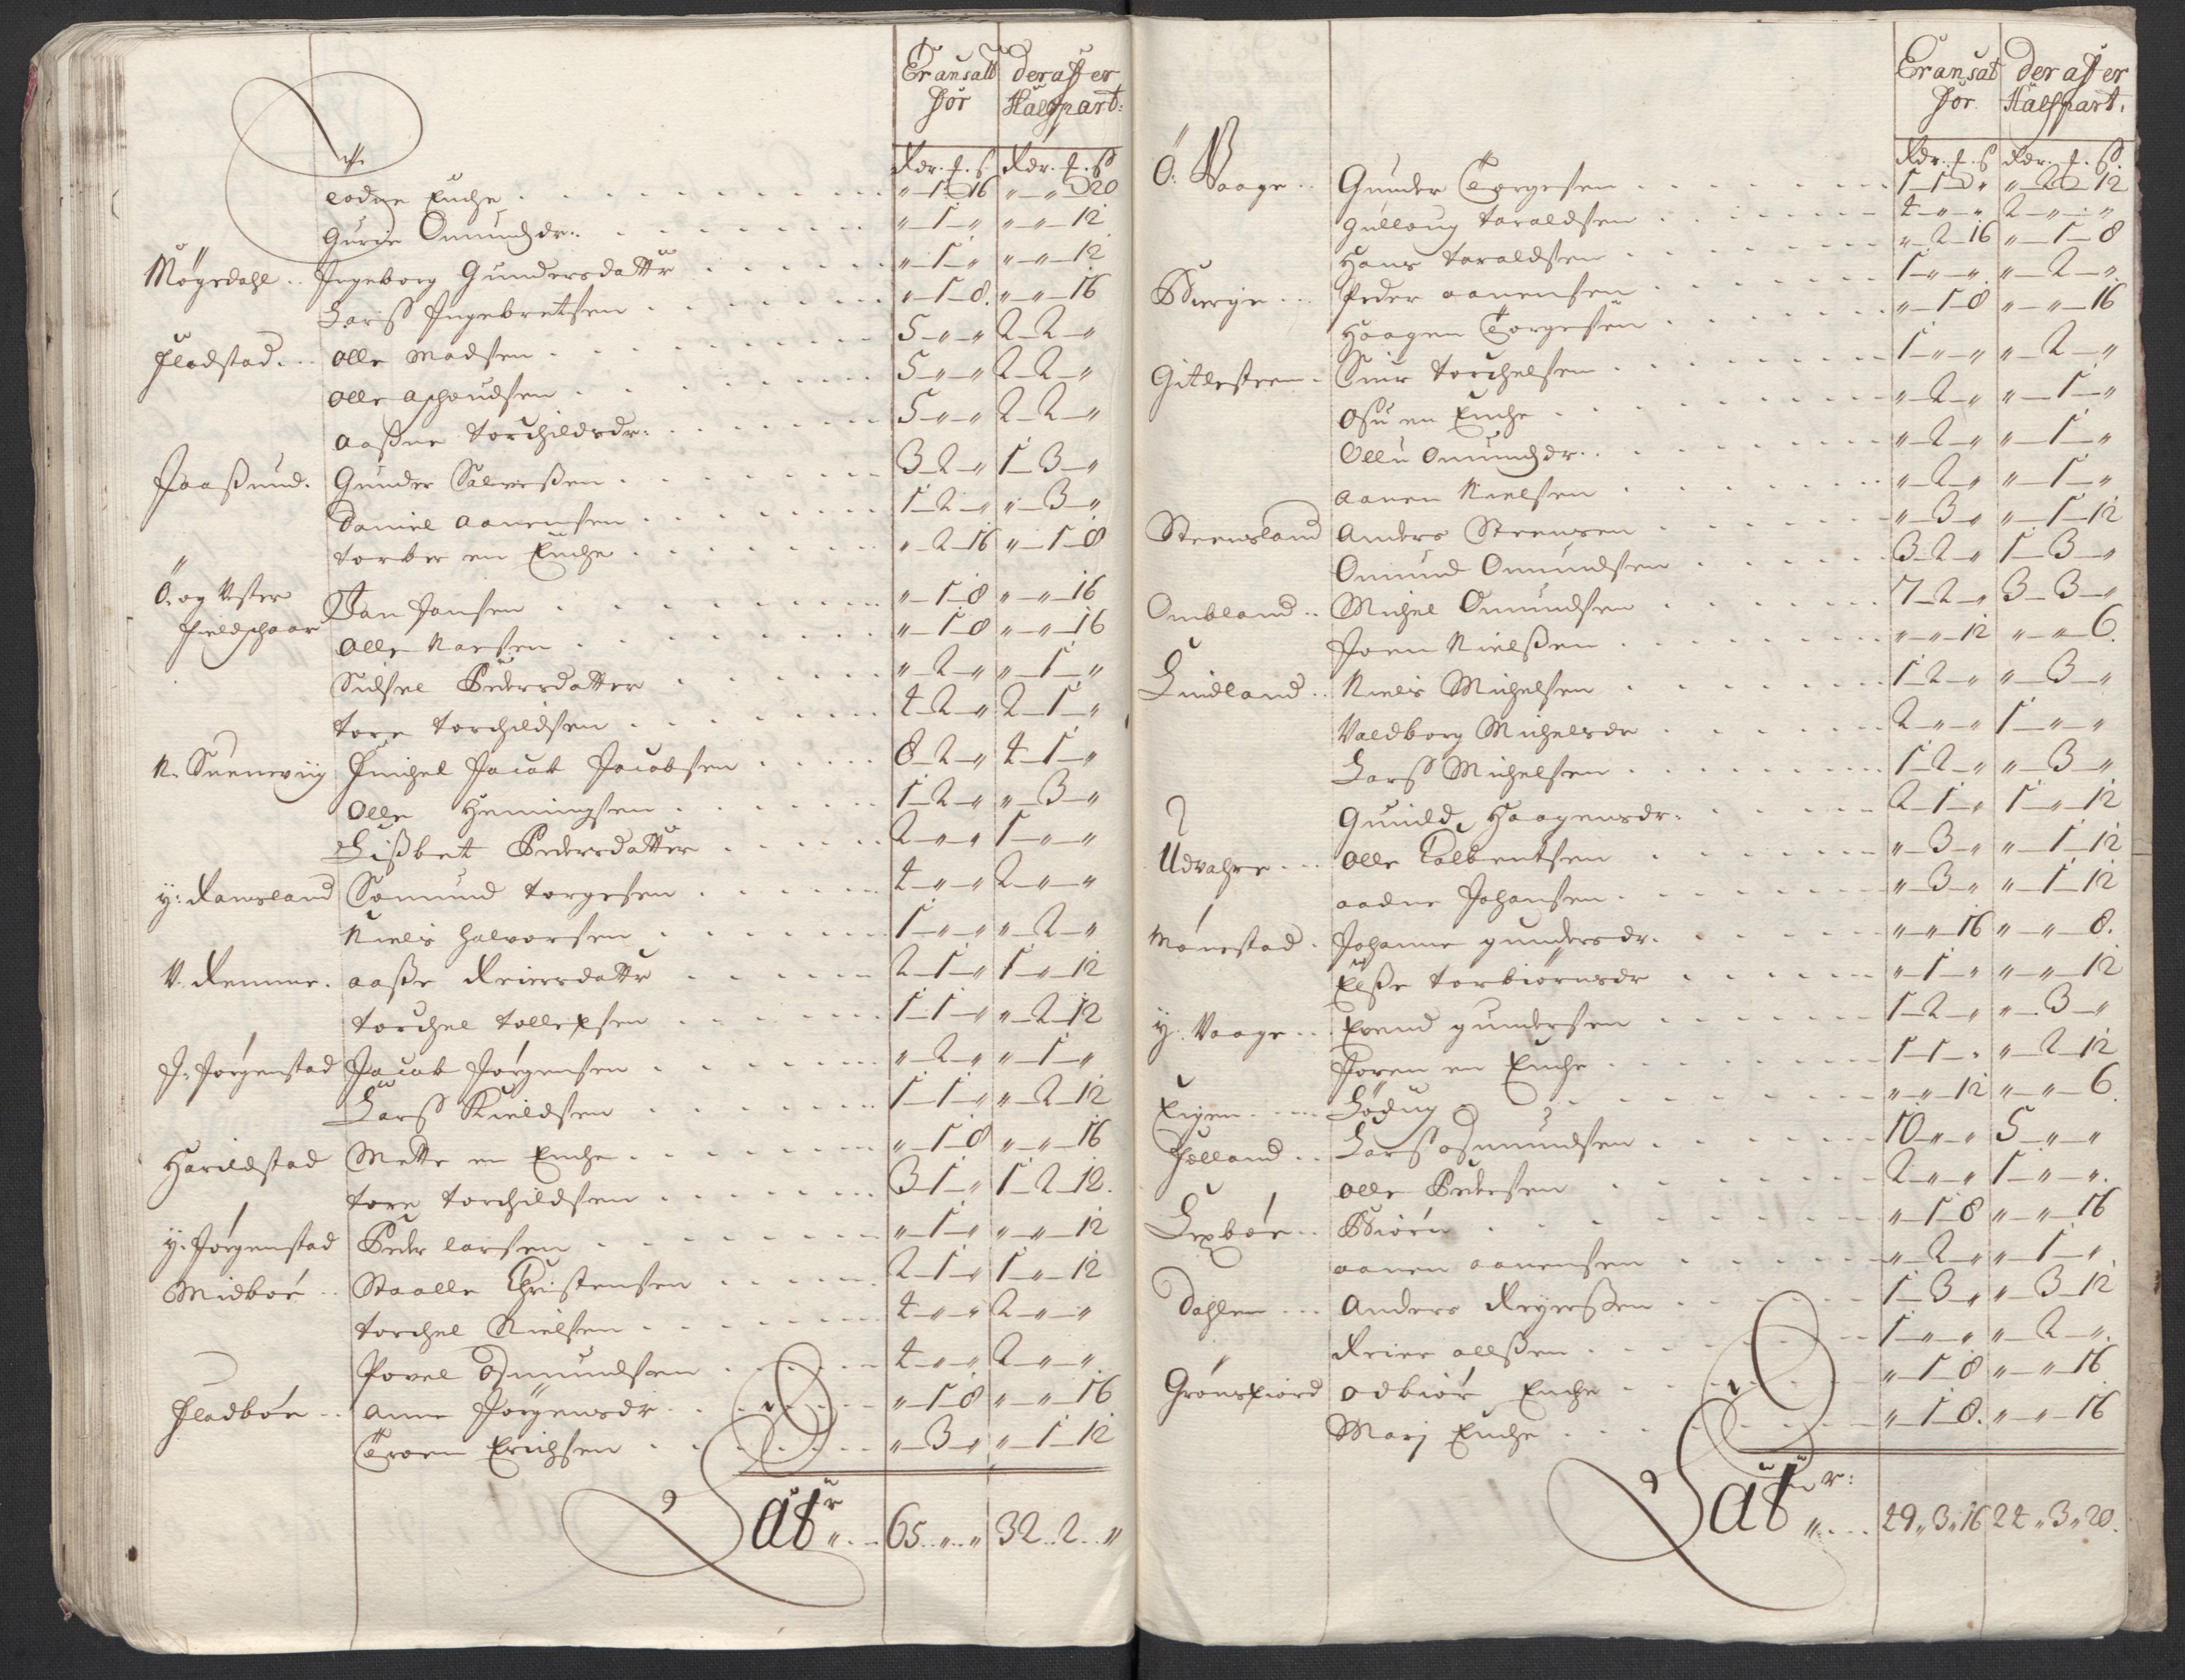 Er ansatt for | Der aff er Halfpart:
Rdr. f. ß | Rdr. f. ß
Lodne Enche . . . „ 1 16 | „ „ 20
Gurie Omundzdr: . . . „ 1 „ | „ „ 12
Møgedahl .. Ingeborg Gundersdattr . . . „ 1 „ | „ „ 12
Larß Ingebretsen . . . „ 1 8. | „ „ 16
Fladstad .. Olle Madsen . . . 5 „ „ | 2 2 „
Olle . . . 5 „ „ | 2 2 „
Aaßne Torchildsdr: . . . 5 „ „ | 2 2 „
Jaaßund. Gunder Salverßen . . . 3 2 „ | 1 3 „
Daniel Aanensen . . . 1 2 „ | „ 3 „
Torber en Enche . . . „ 2 16 | „ 1 8
Ö. og Vster Fieldschaar Jan Jansen . . . „ 1 8 | „ „ 16
Olle Narsen . . . „ 1 8 | „ „ 16
Sidsel Pedersdatter . . . „ 2 „ | „ 1 „
Tore Torchildsen . . . 4 2 „ | 2 1 „
N. Svenevig Jacob Jacobsen . . . 8 2 „ | 4 1 „
Olle Hemingsen . . . 1 2 „ | „ 3 „
Lißbet Pedersdatter . . . 2 „ „ | 1 „ „
Y: Ramsland Somund Torgesen . . . 4 „ „ | 2 „ „
Niels Halvorsen . . . 1 „ „ | „ 2 „
V. Remme. Aaße Reiersdattr . . . 2 1 „ | 1 „ 12
Torchel Tollefsen . . . 1 1 „ | „ 2 12
I. Jørgenstad Jacob Jørgensen . . . „ 2 „ | „ 1 „
Larß Kieldsen . . . 1 1 „ | „ 2 12
Harildstad Mette en Enche . . . „ 1 8 | „ „ 16
Tore Torchildsen . . . 3 1 „ | 1 2 12.
Y. Jørgenstad Peder Larsen . . . „ 1 „ | „ „ 12
Midbøe .. Staalle Christensen . . . 2 1 „ | 1 „ 12
Torchel Nielsen . . . 4 „ „ | 2 „ „
Povel Osmundsen . . . 4 „ „ | 2 „ „
Fladbøe .. Anne Jørgensdr . . . „ 1 8 | „ „ 16
Troen Erichsen . . . „ 3 „ | „ 1 12
Latr „ . . 65 „ „ | 32 2 „
Er ansat for. | Der aff er Halfpart.
Rdr. f. ß | Rdr. f. ß.
Ö: Vaage .. Gunder Torgesen . . . 1 1 „ | „ 2 12
Gulloug Taraldsen . . . 4 „ „ | 2 „ „
Hans Taraldsen . . . „ 2 16 | „ 1 8
Bierge ... Peder Aanensen . . . 1 „ „ | „ 2 „
Haagen Torgesen . . . „ 1 8 | „ „ 16
Gitlesteen . Siur Torchelsen . . . 1 „ „ | „ 2 „
Osu en Enche . . . „ 2 „ | „ 1 „
Ollu Omundzdr . . . „ 2 „ | „ 1 „
Aanen Nielsen . . . „ 2 „ | „ 1 „
Steensland Anders Steensen . . . „ 3 „ | „ 1 12
Omund Omundsen . . . 3 2 „ | 1 3 „
Ombland .. Michel Omundsen . . . 7 2 „ | 3 3 „
Joen Nielßen . . . „ „ 12 | „ „ 6.
Lindland .. Niels Michelsen . . . 1 2 „ | „ 3 „
Valdborg Michelsdr . . . 2 „ „ | 1 „ „
Larß Michelsen . . . 1 2 „ | „ 3 „
Gunild Haagensdr: . . . 2 1 „ | 1 „ 12
Udvahre ... Olle Talbentsen . . . „ 3 „ | „ 1 12
Aadne Johansen . . . „ 3 „ | „ 1 12
Mønestad . Johanne Gundersdr. . . . „ „ 16 | „ „ 8.
Elße Torbiørnsdr . . . „ 1 „ | „ „ 12
Y. Vaage .. Erend Gundersen . . . 1 2 „ | „ 3 „
Joren en Enche . . . 1 1 „ | „ 2 12
Eigen .... Lødug . . . „ „ 12 | „ „ 6.
Følland .. Larß Osmundsen . . . 10 „ „ | 5 „ „
Olle Pedersen . . . 2 „ „ | 1 „ „.
Lexbøe .. Biørn . . . „ 1 8 | „ „ 16
Aanen Aanensen . . . „ 2 „ | „ 1 „
Dahlen ... Anders Reyerßen . . . 1 3 „ | „ 3 12
Reier Olleßen . . . 1 „ „ | „ 2 „.
Grønsfiord Odbiør Enche . . . „ 1 8 | „ „ 16
Marj Enche . . . „ 1 8. | „ „ 16
Latr: „ . . . 49 „ 3 „ 16 | 24 „ 3 „ 20.